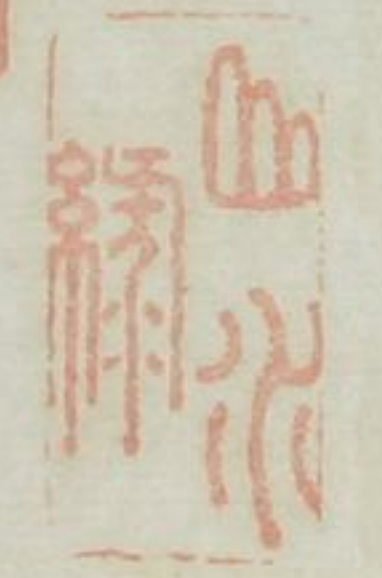 山水
緣